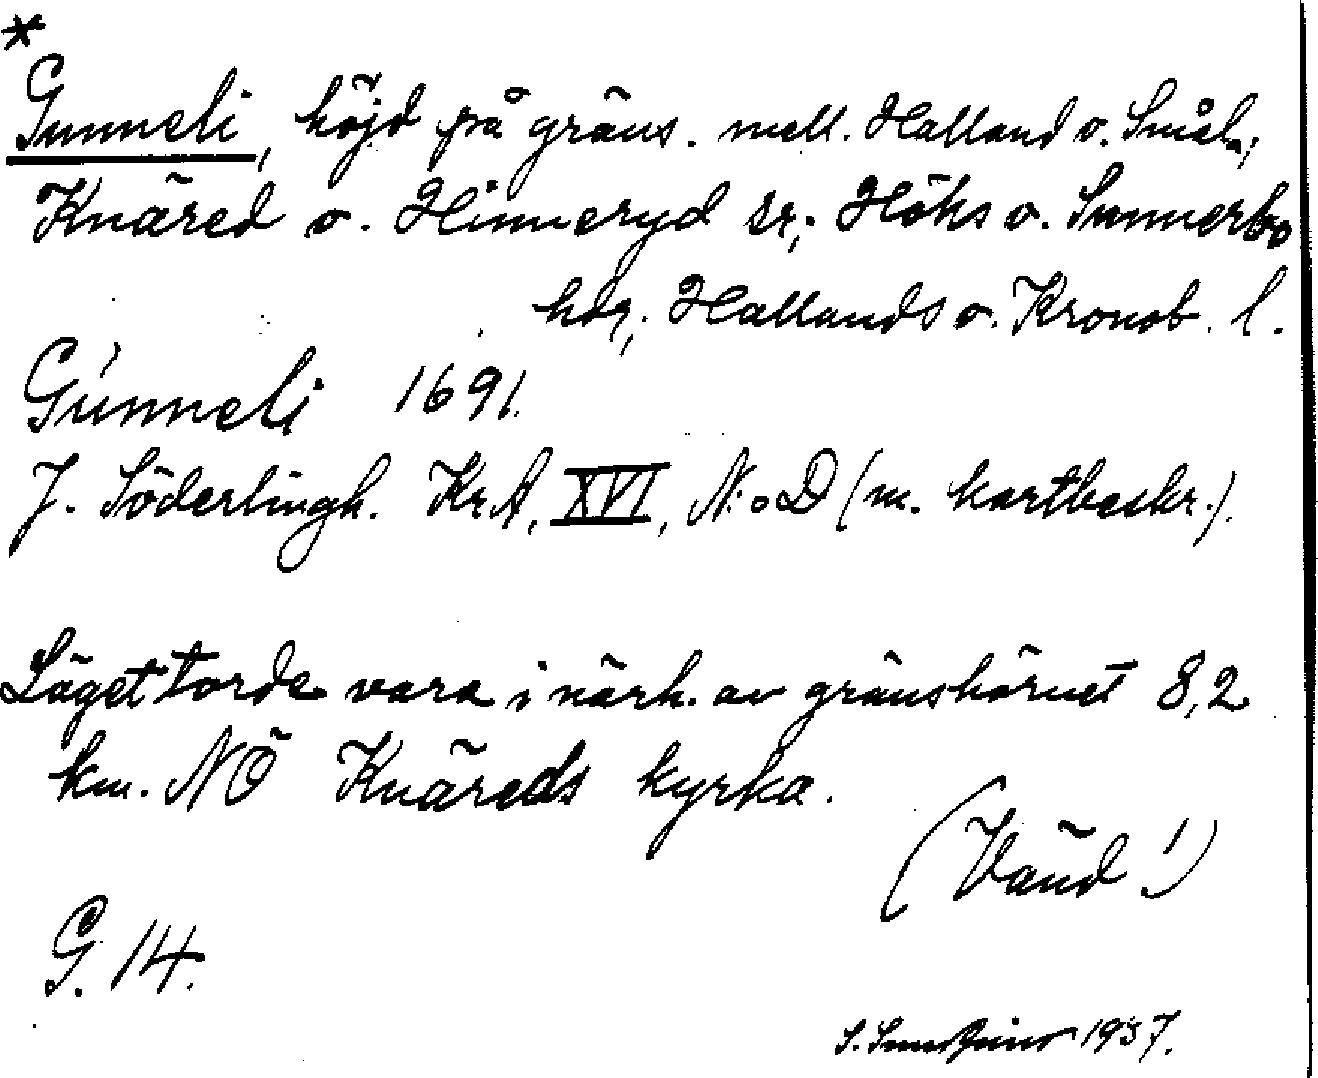 *
Gunneli, höjd på gräns. mell. Halland o. Smål.;
Knäred o. Hinneryd sr; Höks o. Sunnerbo
hdr; Hallands o. Kronob. l.
Gunneli 1691.
J. Söderlingh. Kr.A, XVI, N:o D (m. kartbeskr.).
Läget torde vara i närh. av gränshörnet 8,2
km. NÖ Knäreds kyrka.
(Vänd!)
G. 14.
S. 1937.